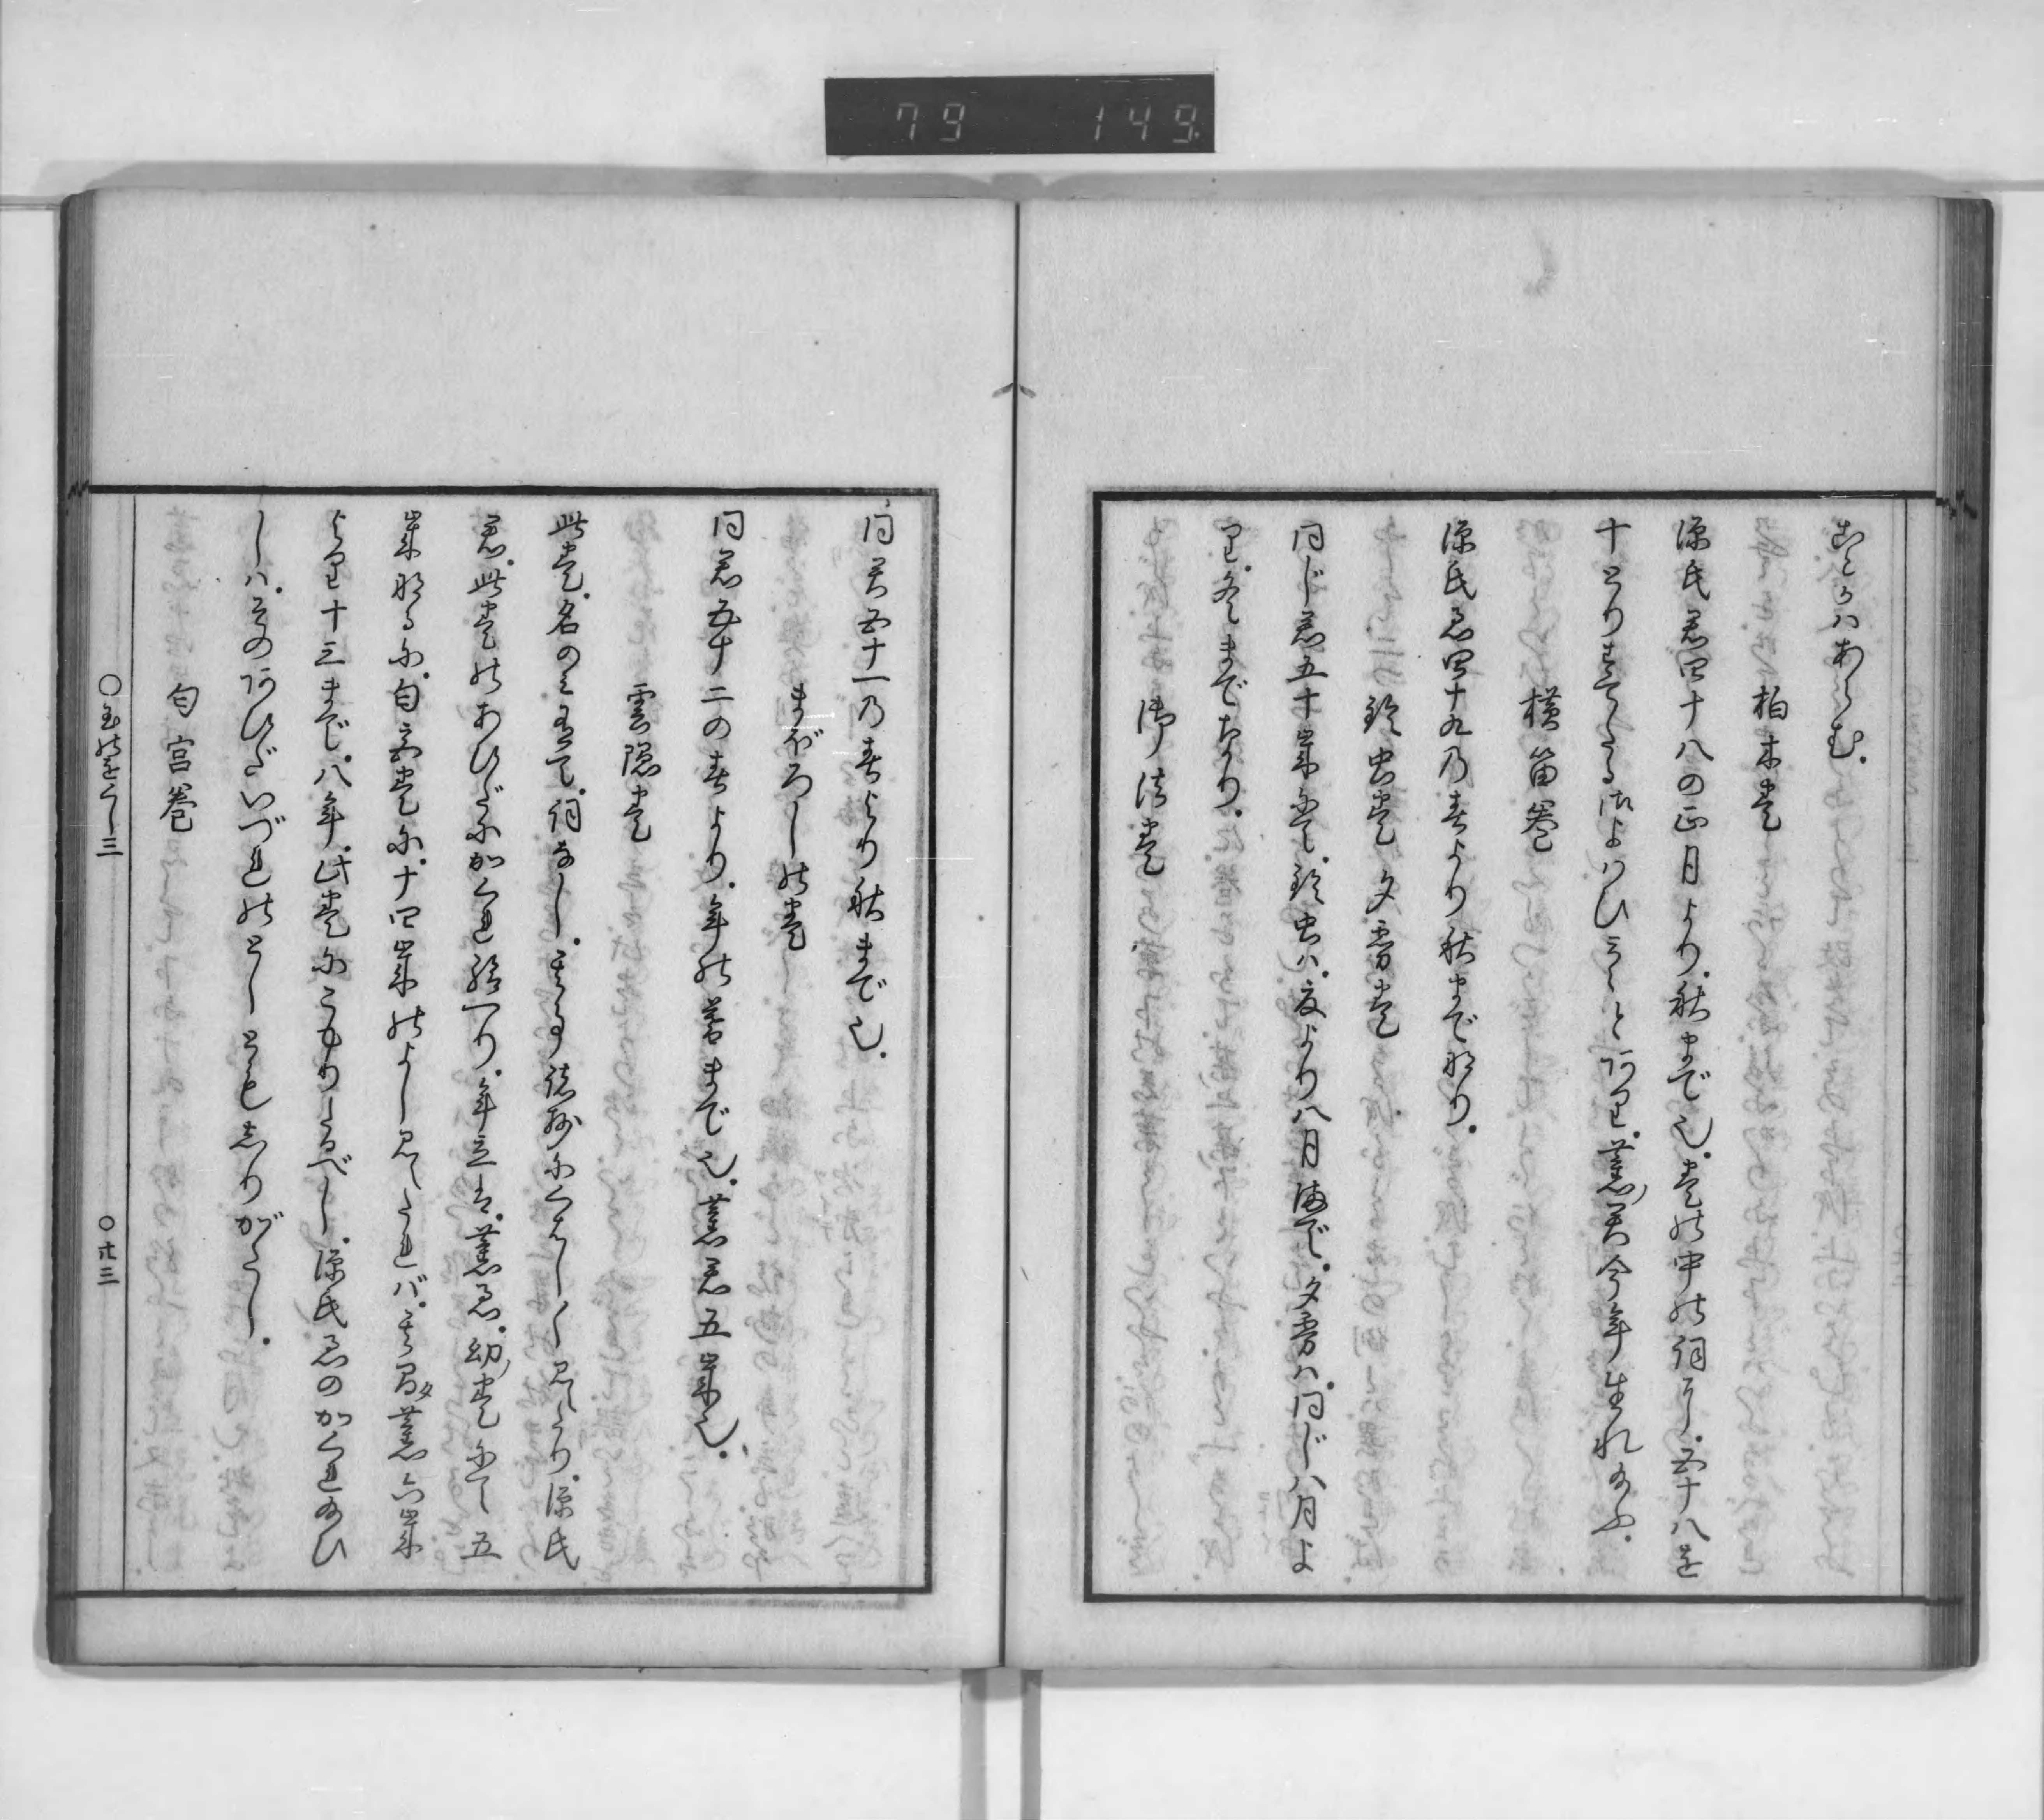 79 149
あらむ。
柏木巻
源氏君四十八の正月より。秋まで也。巻の中の詞に。五十八を
十とりすてたる御よはひ
横笛巻
源氏君四十九の春より秋まで也
鈴虫巻 夕霧巻
同じ君五十歳にて。鈴虫は。夏より八月まで。夕霧は。同じ八月よ
り。冬まであり。
御法巻
同君五十一の春より秋まで也。
まぼろしの巻
同君五十二の春より。年の暮まで也。薫君五歳也。
雲隠巻
此巻。名のみ有て。詞なし。其事諸抄にくはしく見えたり。源氏
君。此巻のあひだにかくれ給へり。年立は。薫君。幻ノ巻にて五
歳なるに。匂宮巻に。十四歳のよし見えたれバ。其間ダ薫六歳
より十三まで。八年。此巻にこもりたるべし。源氏君のかくれ給ひ
しハ。そのあひだいづれのとしともしりがたし。
匂宮巻
○玉のをぐし三 ○廿三